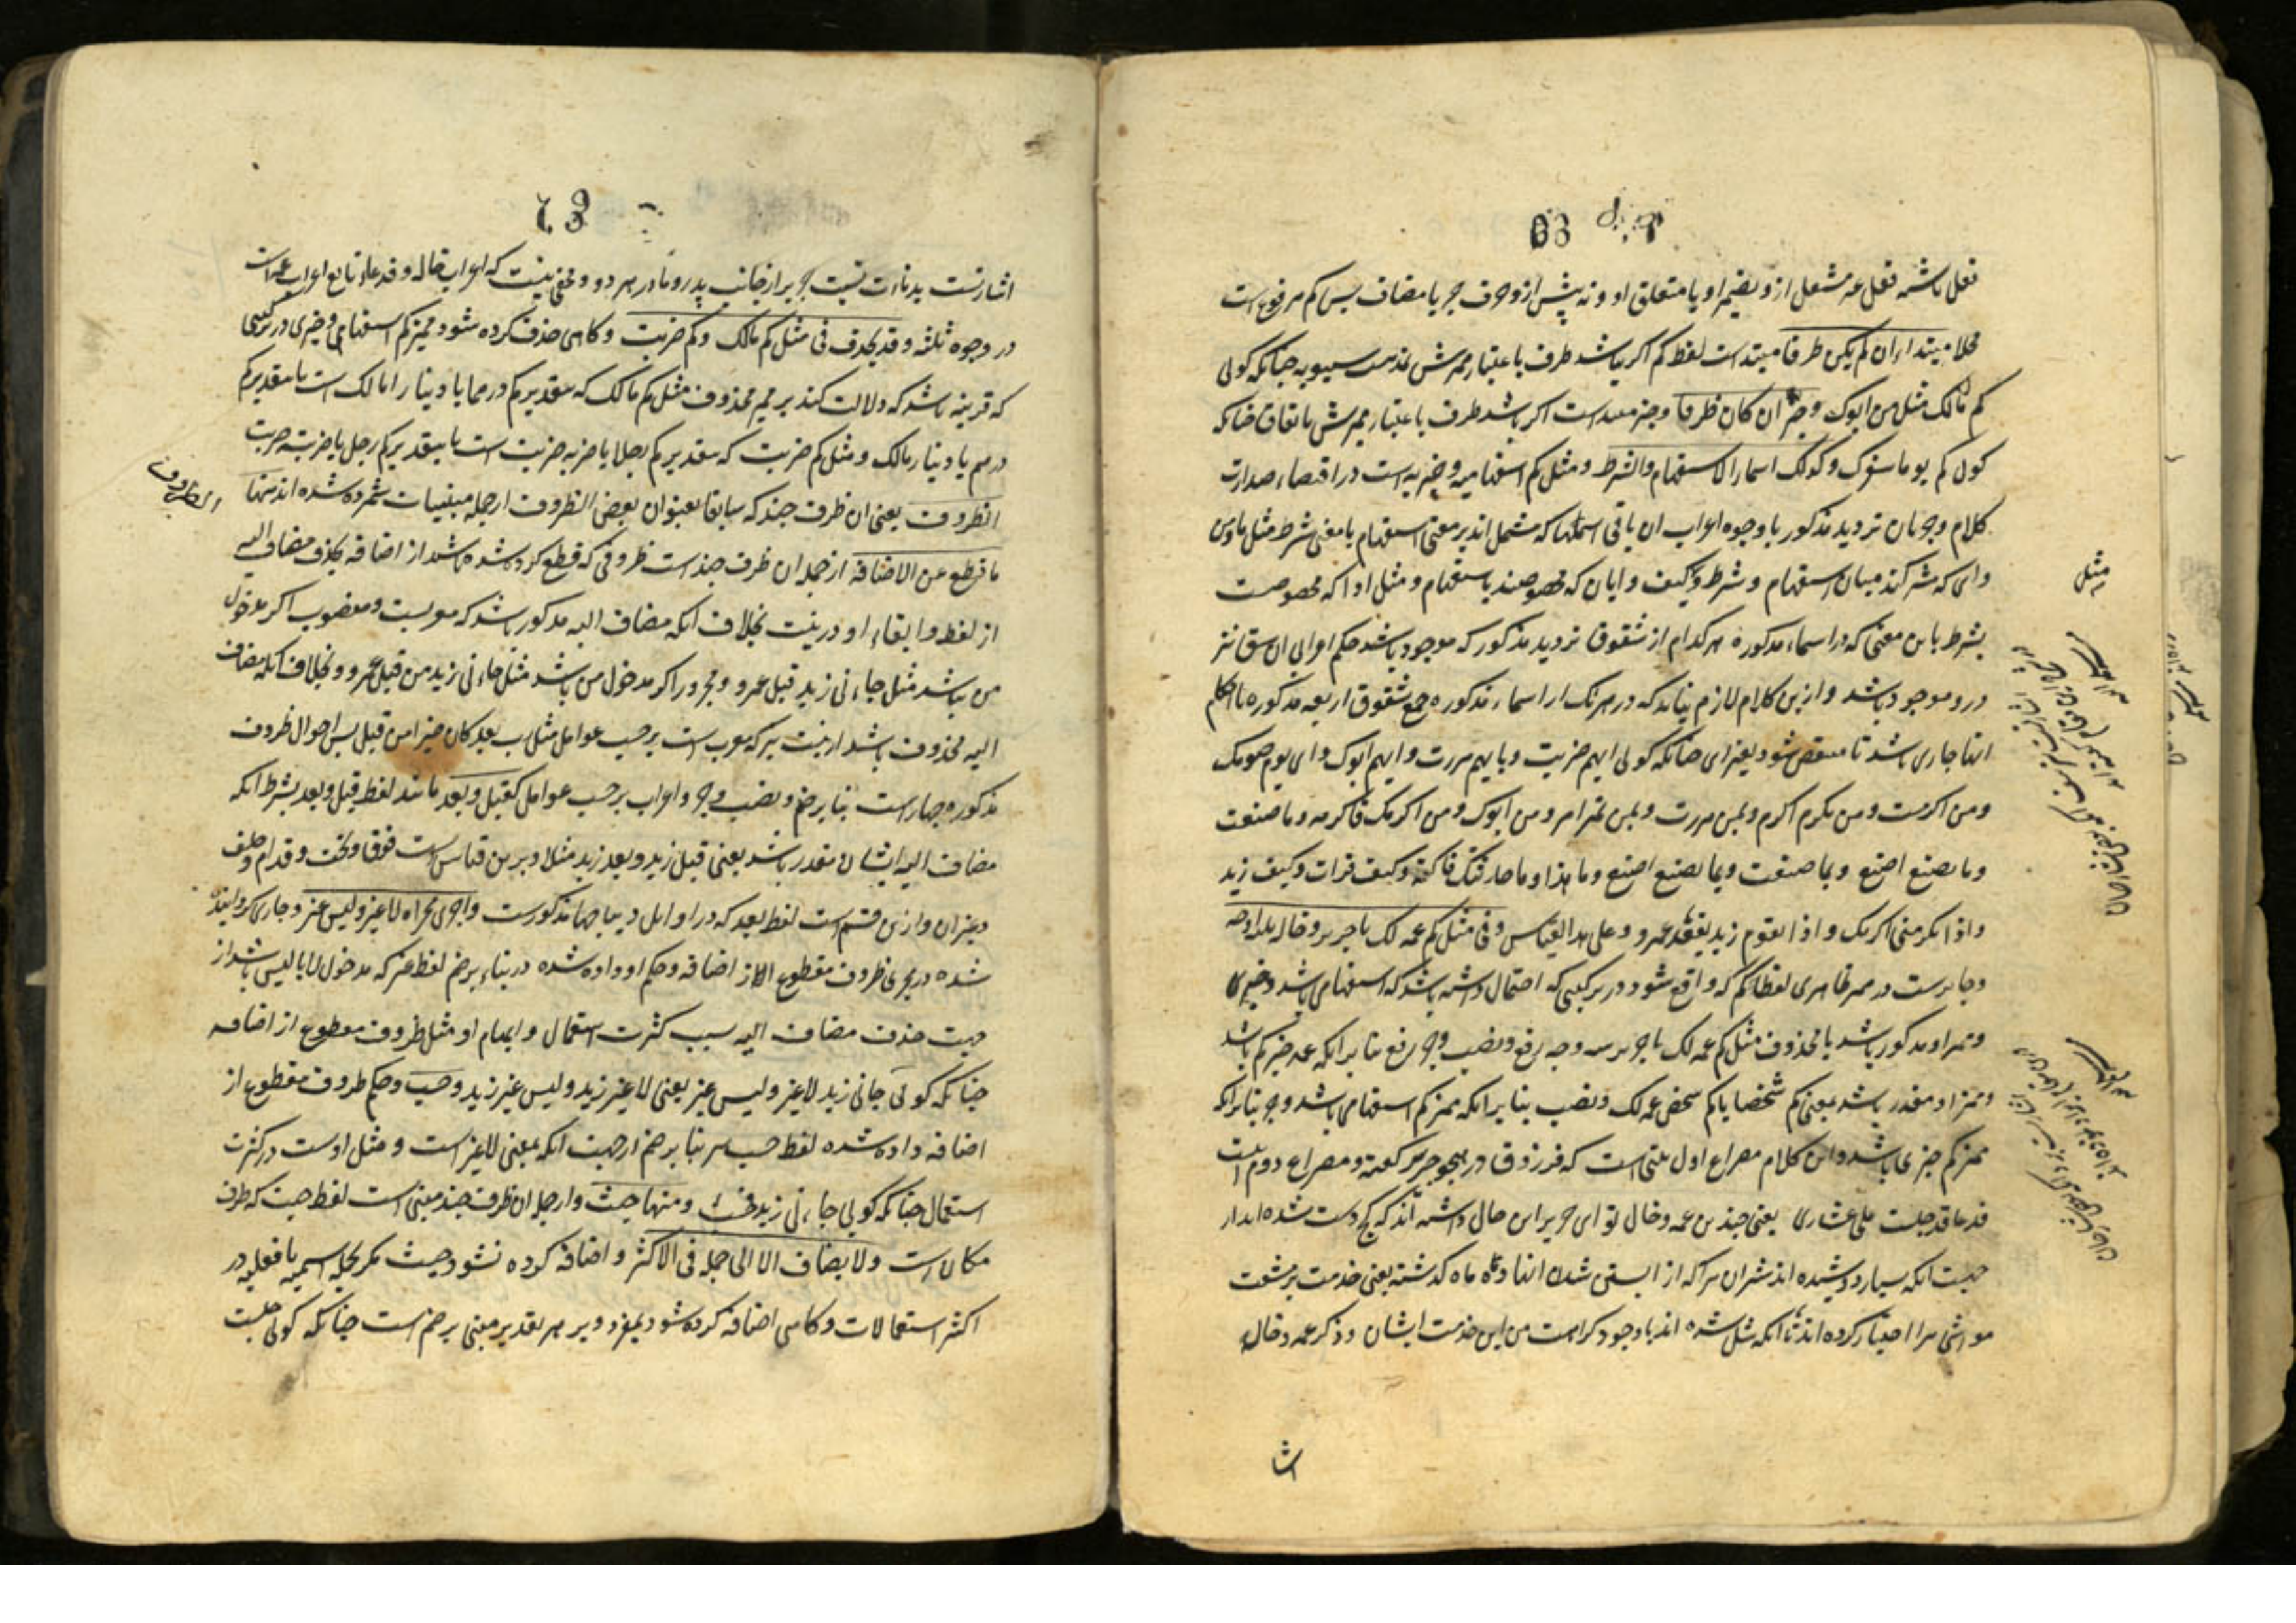 فعل باشبه فعل غیر مشتغل ازو بضمیر او یا متعلق او و نه پیش ازو حرف جر یا مضاف پس کم مرفوع است
محلا مبتداء ان لم یکن ظرفا مبتدا است لفظ کم اکر نباشد ظرف باعتبار ممیزش بمذهب سیبویه چنانکه کوئی
کم مالک مثل من ابوک و خبر ان کان ظرفا و خبر مبتدا است اکر باشد ظرف باعتبار ممیزش باتفاق چنانکه
کوئی کم یوما سفرک و کذلک اسماء الاستفهام والشرط و مثل کم استفهامیه و خبریه است در اقتضاء صدارت
کلام و جریان تردید مذکور با وجوه اعراب ان باقی اسمائها که مشتمل اند بر معنی استفهام یا معنی شرط مثل ما و من
و ای که مشترکند میان استفهام و شرط و کیف و ایان که مخصوصند باستفهام و مثل اذا که مخصوصست
بشرط باین معنی که در اسماء مذکوره هر کدام از شقوق تردید مذکور که موجود باشد حکم اعرابی ان شق نیز
درو موجود باشد و ازین کلام لازم نیاید که در هر یک از اسماء مذکوره جمیع شقوق اربعه مذکوره با احکام
انها جاری باشد تا منتقض شود بغیر ای چنانکه کوئی ایهم ضربت و بایهم مررت و ایهم ابوک و ای یوم صومک
و من اکرمت و من یکرم اکرم و بمن مررت و بمن تمرر امرر و من ابوک و من اکرمک فاکرمه و ما صنعت
و ما تصنع اصنع و بما صنعت و بما تصنع اصنع و ما هذا و کیف قرات و کیف زید
و اذا تکرمنی اکرمک و اذا یقوم زید یقعد عمرو و علی هذا القیاس و فی مثل کم عمه لک یا جریر و خاله ثلثه اوجه
و جایزست در ممیز ظاهری لفظ کم که واقع شود در ترکیبی که احتمال داشته باشد که استفهامی باشد و خبری
و ممیز او مذکور باشد یا محذوف مثل کم عمه لک یا جریر سه وجه رفع و نصب و جر رفع بنا بر انکه عمه خبر کم باشد
و ممیز او مقدر باشد بمعنی کم شخصا یا کم شخص عمه لک و نصب بنا بر انکه ممیز کم استفهامی باشد و جر بنا بر انکه
ممیز کم خبری باشد و این کلام مصراع اول بیتی است که فرزدق در هجو جریر کفته و مصراع دوم اینست
فدعاء قد حلبت علی عشاری یعنی چندین عمه و خال تو ای جریر این حال داشته اند که کج دست شده اند از
جهت انکه بسیار دوشیده اند شتران مرا که از ابستنی شدن انها ده ماه کذشته یعنی خدمت
مواشی مرا اختیار کرده اند تا انکه شل شده اند با وجود کراهت من این خدمت ایشان و ذکر عمه و خاله
مثل
اشا
اشارتست بدنائت نسبت جریر از جانب پدر و مادر هر دو و مخفی نیست که اعراب خاله و فدعاء تابع اعراب عمه است
در وجوه ثلثه و قد یحذف فی مثل کم مالک و کم ضربت و کاهی حذف کرده شود ممیز کم استفهامی و خبری در ترکیبی
که قرینه باشد که دلالت کند بر ممیز محذوف مثل کم مالک که بتقدیر کم درهما یا دینارا مالک است یا بتقدیر کم
درهم یا دینار مالک و مثل کم ضربت که بتقدیر کم رجلا یا ضربه ضربت است یا بتقدیر کم رجل یا ضربته ضربت
الظروف یعنی ان ظرف چند که سابقا بعنوان بعض الظروف از جمله مبنیات شمرده شده اند منها
الظروف
ما قطع عن الاضافه از جمله ان ظرف چند است ظروفی که قطع کرده شده باشد از اضافه بحذف مضاف الیه
از لفظ و ابقاء او در نیت بخلاف انکه مضاف الیه مذکور باشد که معربست و منصوب اکر مدخول
من نباشد مثل جاءنی زید قبل عمرو و مجرور اکر مدخول من باشد مثل جاءنی زید من قبل عمرو و بخلاف انکه مضاف
الیه محذوف باشد از نیت نیز که معرب است بر حسب عوامل مثل رب بعد کان خیرا من قبل پس احوال ظروف
مذکوره چهارست بنا بر ضم و نصب و جر و اعراب بر حسب عوامل کقبل و بعد مانند لفظ قبل و بعد بشرط انکه
مضاف الیه ایشان مقدر باشد یعنی قبل زید و بعد زید مثلا و برین قیاس است فوق و تحت و قدام و خلف
و غیر ان و ازین قسم است لفظ بعد که در اوایل دیباجها مذکورست و اجری مجراه لا غیر و لیس غیر و جاری کردانیده
شده در مجری ظروف مقطوع از اضافه و حکم او داده شده در بناء بر ضم لفظ غیر که مدخول لا یا لیس باشد از
جهت حذف مضاف الیه سبب کثرت استعمال و ابهام او مثل ظروف مقطوع از اضافه
چنانکه کوئی جانی زید لا غیر و لیس غیر یعنی لا غیر زید و لیس غیر زید و حسب و حکم ظروف مقطوع از
اضافه داده شده لفظ حسب در بنا بر ضم از جهت انکه بمعنی لا غیر است و مثل اوست در کثرت
استعمال چنانکه کوئی جاءنی زید فحسب و منها حیث و از جمله ان ظرف چند مبنی است لفظ حیث که ظرف
مکان است و لا یضاف الا الی جمله فی الاکثر و اضافه کرده نشود حیث مکر بجمله اسمیه یا فعلیه در
اکثر استعمالات و کاهی اضافه کرده شود بمفرد و بر هر تقدیر مبنی بر ضم است چنانکه کوئی جلست